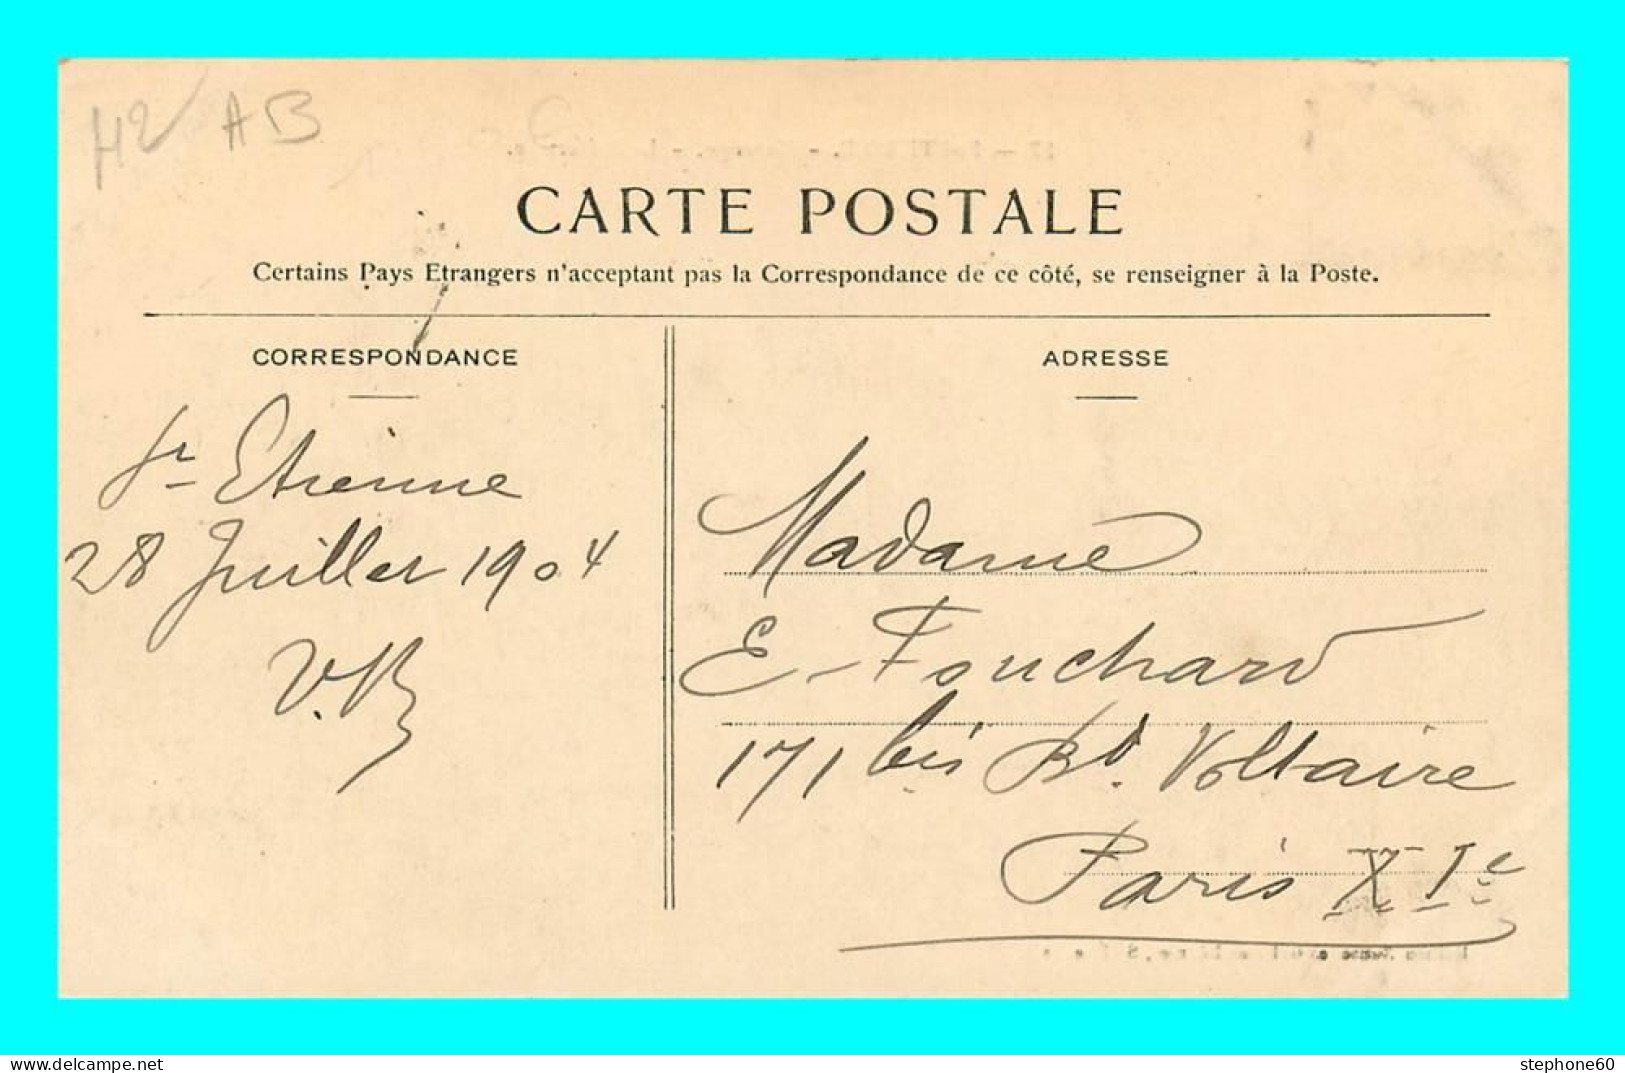 H2 AB
CARTE POSTALE
Certains Pays Etrangers n'acceptant pas la Correspondance de ce côté, se renseigner à la Poste.
CORRESPONDANCE
St Etienne
28 Juillet 1904
V.B
ADRESSE
Madame
E. Fouchard
171 bis Bd. Voltaire
Paris XIe
www.delcampe.net
stephone60